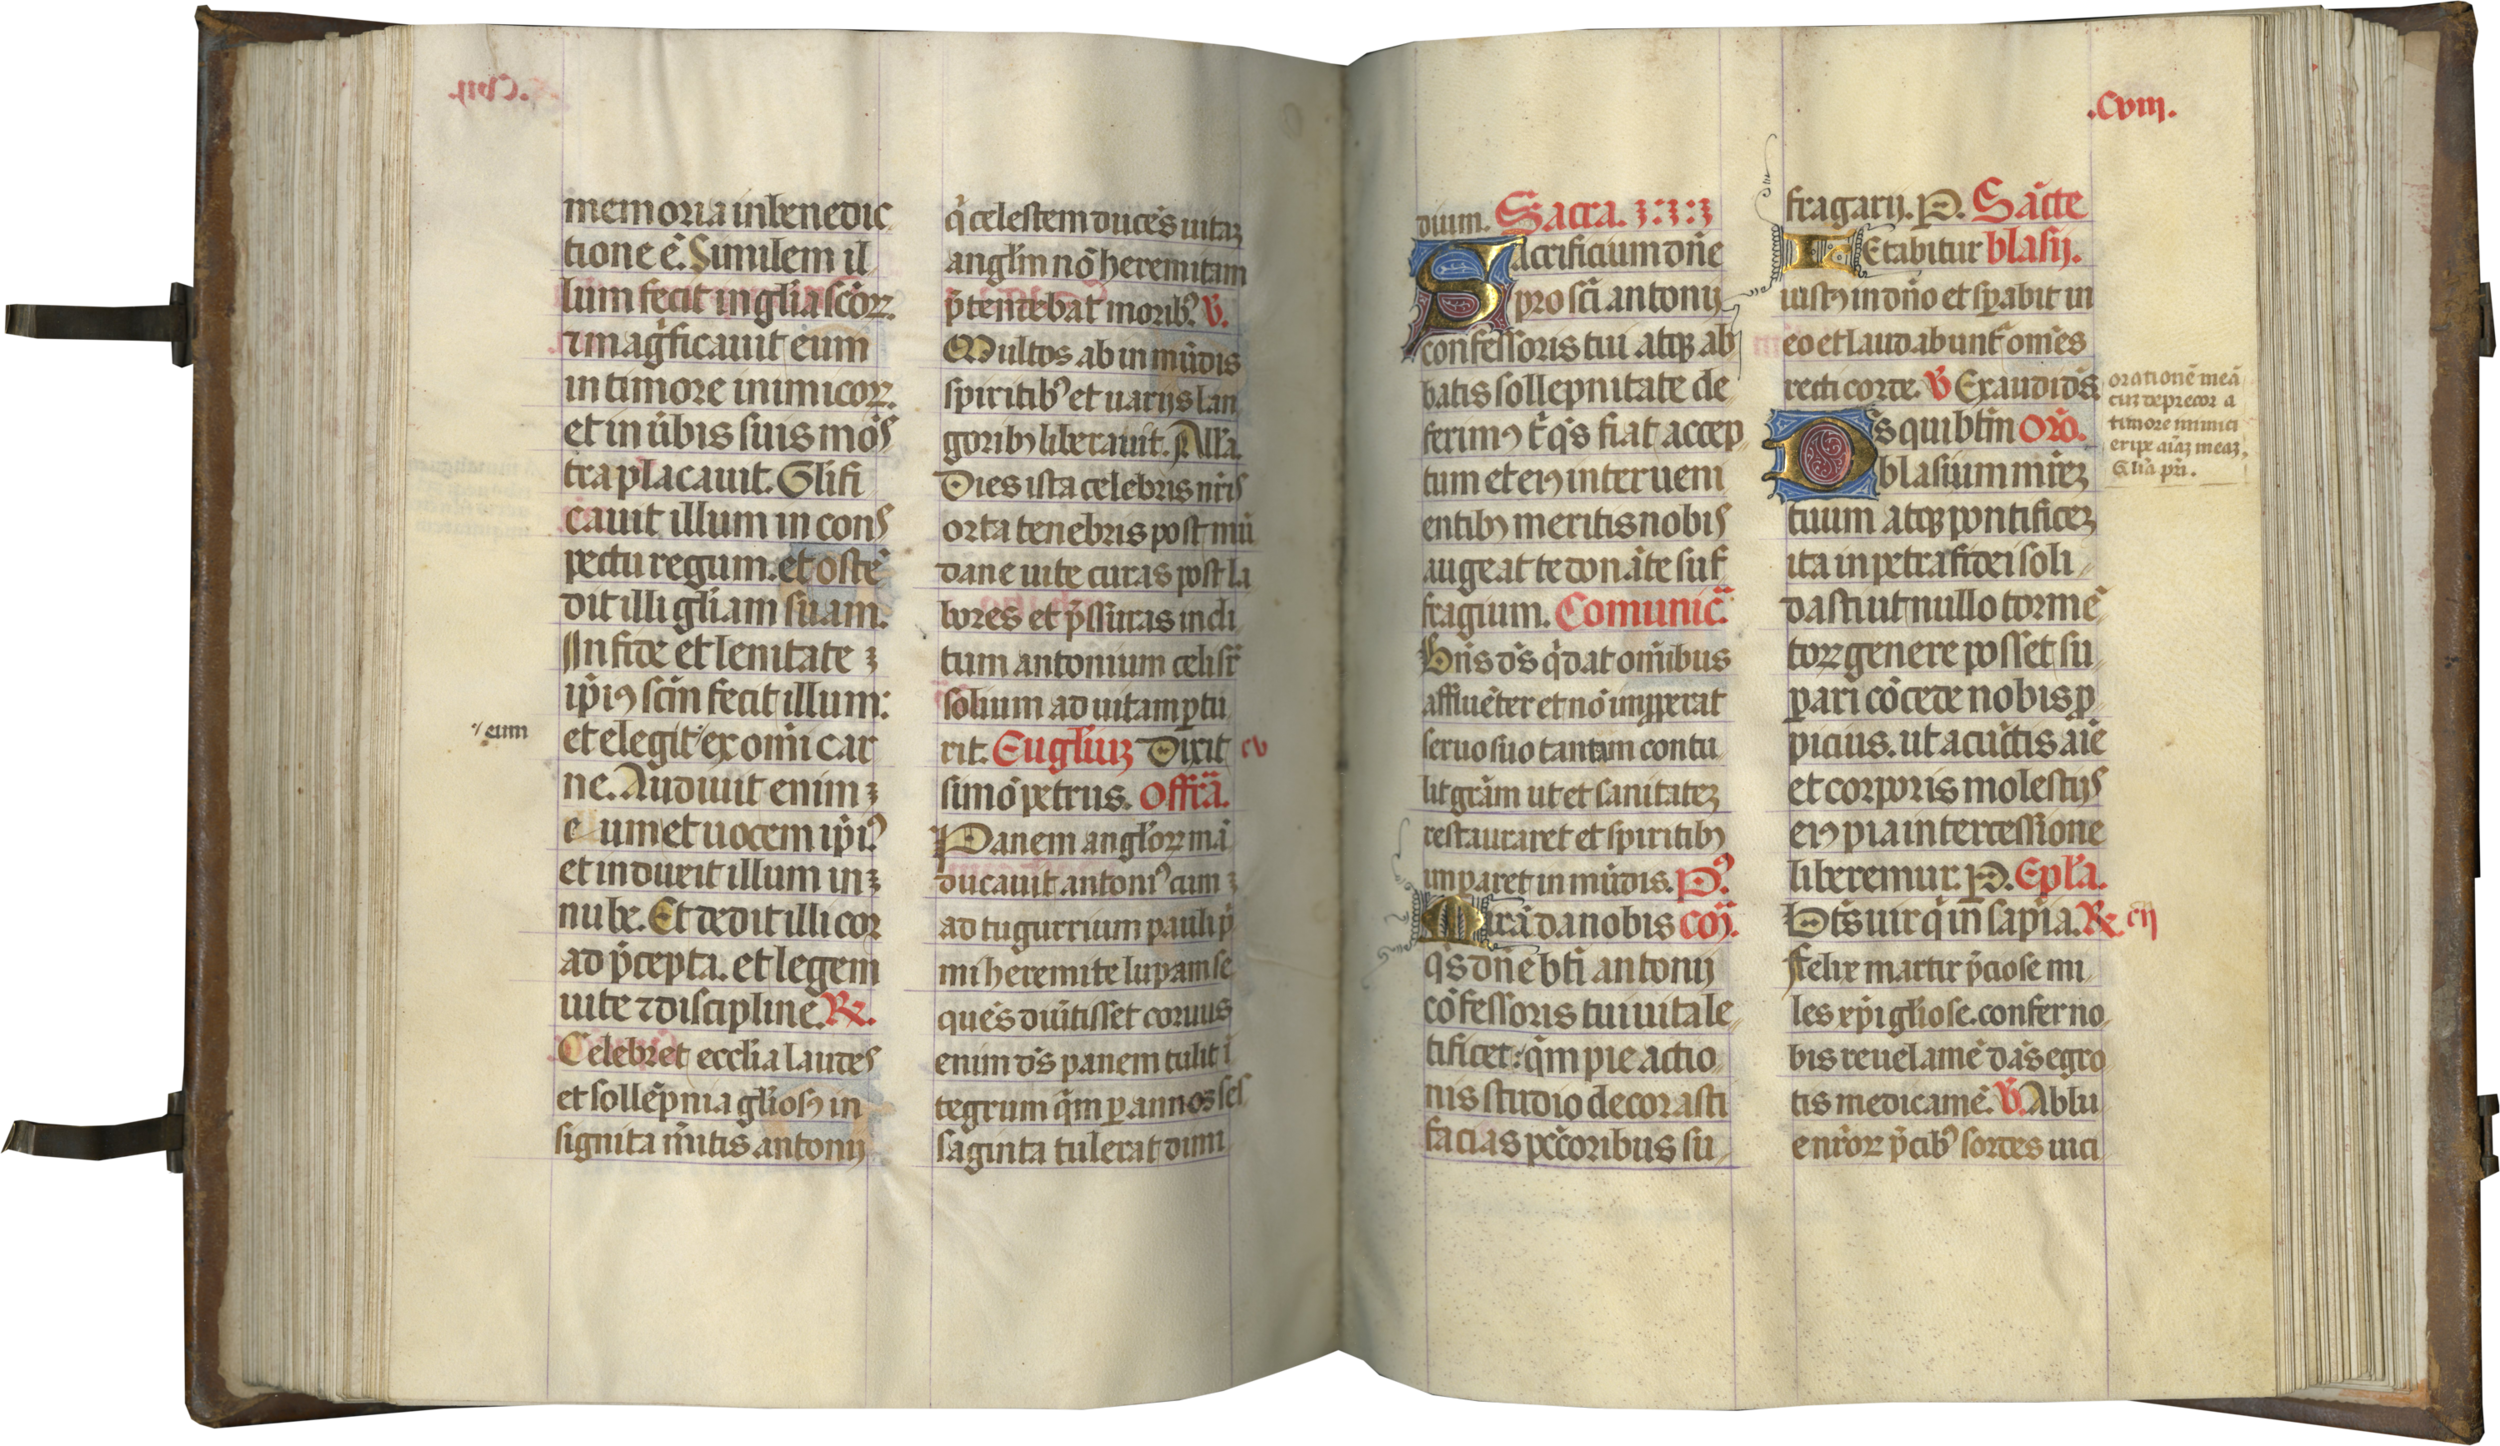 memoria in benedic
tione ē. Similem il
lum fecit in gl̄ia sc̄oꝝ.
⁊ magͥficauit eum
in timore inimicoꝝ.
et in ūbis suis mōs
tra placauit. Gl̄ifi
cauit illum in cons
pectu regum. et oste
dit illi gl̄iam suam.
In fide et lenitate
ip̄iꝰ scm̄ fecit illum:
eum
et elegit ex om̄i car
ne. Audiuit enim
eum et uocem ip̄iꝰ
et induxit illum in
nube. Et dedit illi cor
ad p̄cepta. et legem
uite ⁊ discipline. R̷.
Celebret eccl̄ia laudes
et sollēpnia gl̄iosꝫ in
signita m̄itis antonij
qͥ celestem ducēs uitaꝫ
angl̄m nō heremitam
p̄tendebat moribꝰ. V̷.
Multos ab inmūdis
spiritibꝰ et uarijs lan
goribꝫ liberauit. All̄a.
Dies ista celebris nr̄is
orta tenebris post mū
dane uite curas post la
bores et p̄ssuras incli
tum antonium celi sr̄
solium ad uitam ꝑtu
rit. Eugl̄iuꝫ Dixit cv
simō petrus. Offrā.
Panem angl̄oꝝ mā
ducauit antoniꝰ cum
ad tugurrium pauli pͥ
mi heremite lupam se
ques diūtisset coruus
enim dꝰs panem tulit ī
tegrum qͣm ꝑ annos ses
saginta tulerat dimi
.Cviij.
dium. Sacra.
Sacrificium dn̄e
pro sc̄i antonij
confessoris tui atqꝫ ab
batis sollepnitate de
ferimꝰ t̄ q̄s fiat accep
tum et eiꝰ interueni
entibꝫ meritis nobis
augeat te donāte suf
fragium. Comunic̄.
Dn̄s dꝰs qͥ dat om̄ibus
affluēter et nō impͥperat
seruo suo tantam contu
lit grām ut et sanitateꝫ
restauraret et spiritibꝫ
imparet in mūdis. Pꝰ
Mirā da nobis cōꝫ.
q̄s dn̄e bt̄i antonij
cōfessoris tui ui tale
tificet: qͣm pie actio
nis studio decorasti
facias pctōribus su
fragarij. P. Sāc̄te
Letabitur blasij.
iustꝰ in dn̄o et sꝑabit in
eo et laudabunt̄ om̄es
recti corde. V̷ Exaudi dꝰs
orationē meā
cuꝫ deprecor a
timore inimici
eripe aīaꝫ meaꝫ.
Gl̄ia pr̄i.
Dꝰs qui bt̄m Orō.
blasium mr̄eꝫ
tuum atqꝫ pontificeꝫ
ita in petra fidei soli
dasti ut nullo tormē
toꝝ genere posset su
pari cōcede nobis ꝓ
picius. ut a cūctis aīe
et corporis molestijs
eiꝰ pia intercessione
liberemur. P. Epl̄a.
Btꝰs uir qͥ in sap̄ia. R̷. cij
Felix martir p̄ciose mi
les xp̄i gl̄iose. confer no
bis reuelamē das egro
tis medicamē. V̷. Ablu
entoꝝ p̄cibꝰ sordes uici